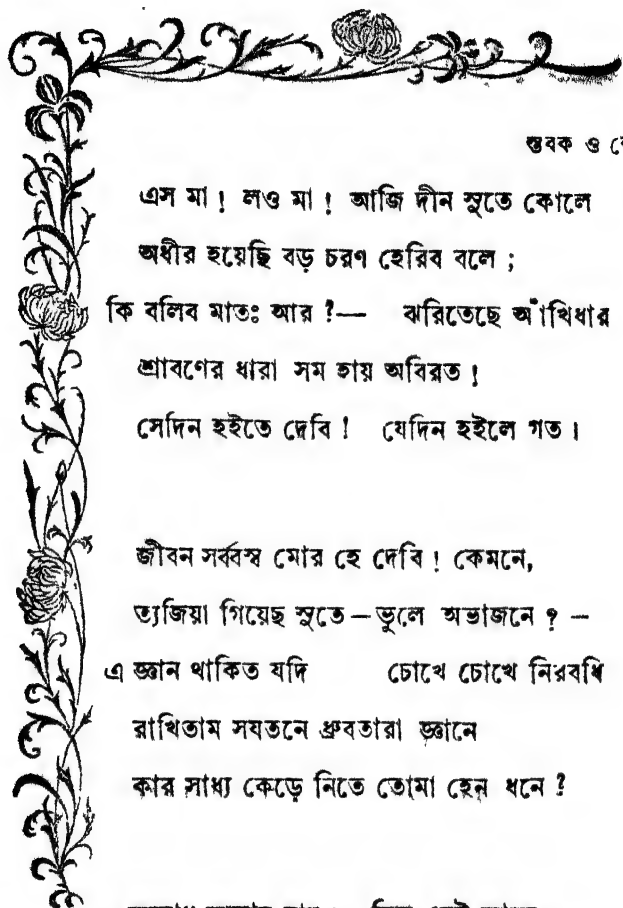 স্তবক ও
এস মা ! লও মা ! আজি দীন সুতে কোলে
অধীর হয়েছি বড় চরণ হেরিব বলে ;
কি বলিব মাতঃ আর ?— ঝরিতেছে আঁখিধার
শ্রাবণের ধারা সম হায় অবিরত !
সেদিন হইতে দেবি ! যেদিন হইলে গত ।
জীবন সর্ব্বস্ব মোর হে দেবি ! কেমনে,
ত্যজিয়া গিয়েছ সুতে—ভুলে অভাজনে ? –
এ জ্ঞান থাকিত যদি চোখে চোখে নিরবধি
রাখিতাম সযতনে ধ্রুবতারা জ্ঞানে
কার সাধ্য কেড়ে নিতে তোমা হেন ধনে ?